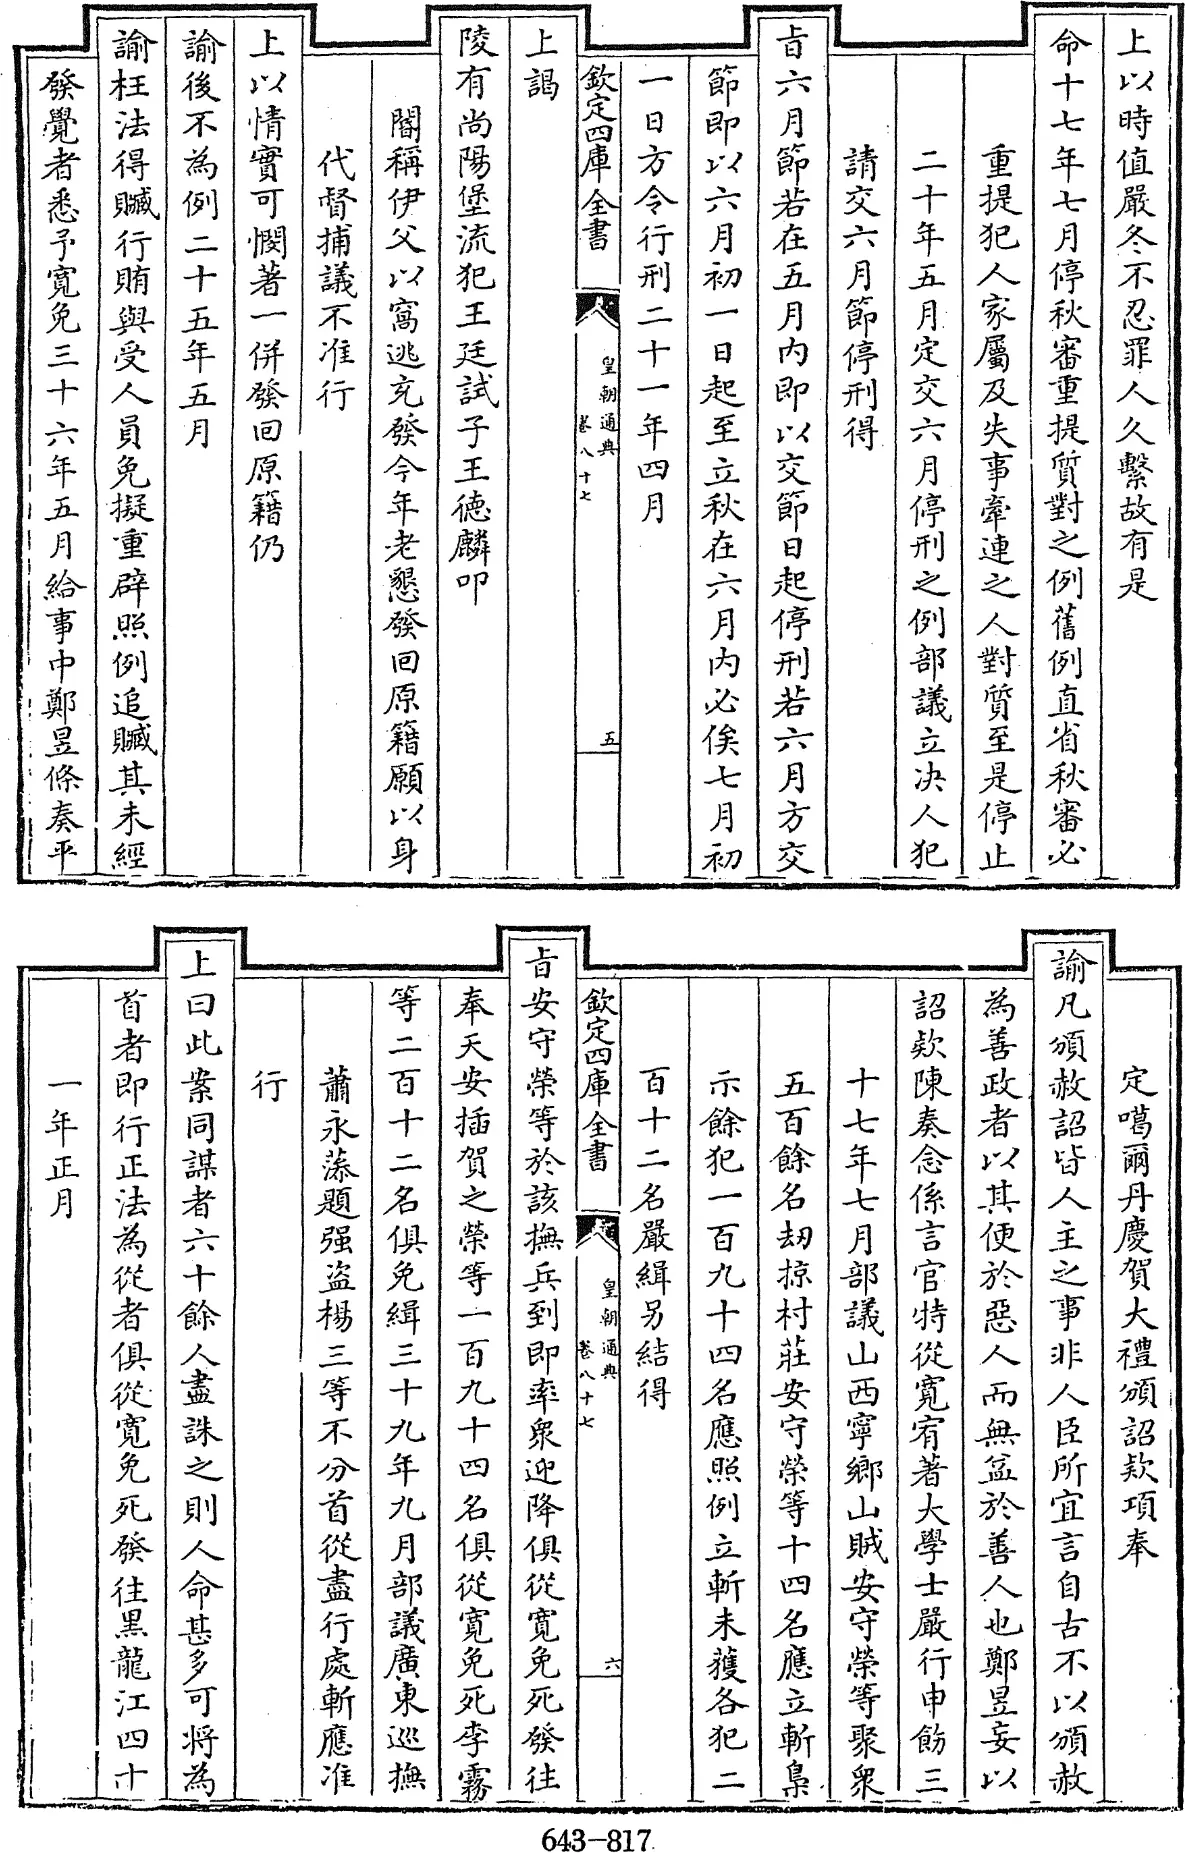 上以時值嚴冬不忍罪人久繫故有是
命十七年七月停秋審重提質對之例舊例直省秋審必
重提犯人家屬及失事牽連之人對質至是停止
二十年五月定交六月停刑之例部議立决人犯
請交六月節停刑得
㫖六月節若在五月内即以交節日起停刑若六月方交
節即以六月初一日起至立秋在六月内必俟七月初
一日方令行刑二十一年四月
欽定四庫全書
皇朝通典
卷八十七
五
上謁
陵有尚陽堡流犯王廷試子王德麟叩
閽稱伊父以窩逃充發今年老懇發回原籍願以身
代督捕議不准行
上以情實可憫著一併發回原籍仍
諭後不為例二十五年五月
諭枉法得贓行賄與受人員免擬重辟照例追贓其未經
發覺者悉予寛免三十六年五月給事中鄭昱條奏平
定噶爾丹慶賀大禮頒詔欵項奉
諭凡頒赦詔皆人主之事非人臣所宜言自古不以頒赦
為善政者以其便於惡人而無益於善人也鄭昱妄以
詔欵陳奏念係言官特從寛宥著大學士嚴行申飭三
十七年七月部議山西寧鄉山賊安守榮等聚衆
五百餘名刼掠村莊安守榮等十四名應立斬梟
示餘犯一百九十四名應照例立斬未獲各犯二
百十二名嚴緝另結得
欽定四庫全書
皇朝通典
卷八十七
六
㫖安守榮等於該撫兵到即率衆迎降俱從寛免死發往
奉天安插賀之榮等一百九十四名俱從寛免死李霧
等二百十二名俱免緝三十九年九月部議廣東巡撫
蕭永藻題强盜楊三等不分首從盡行處斬應准
行
上曰此案同謀者六十餘人盡誅之則人命甚多可將為
首者即行正法為從者俱從寛免死發往黒龍江四十
一年正月
643-817